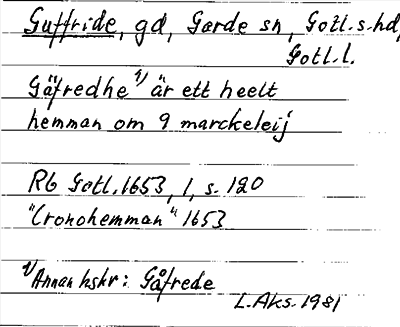 Guffride, gd, Garde sn, Gotl.s.hd,
Gotl.l.
Gåfredhe 1) är ett heelt
hemman om 9 marckeleij
Rb Gotl. 1653, 1, s. 120
"Cronohemman" 1653
1) Annan hskr: Gåfrede
L.Aks. 1981